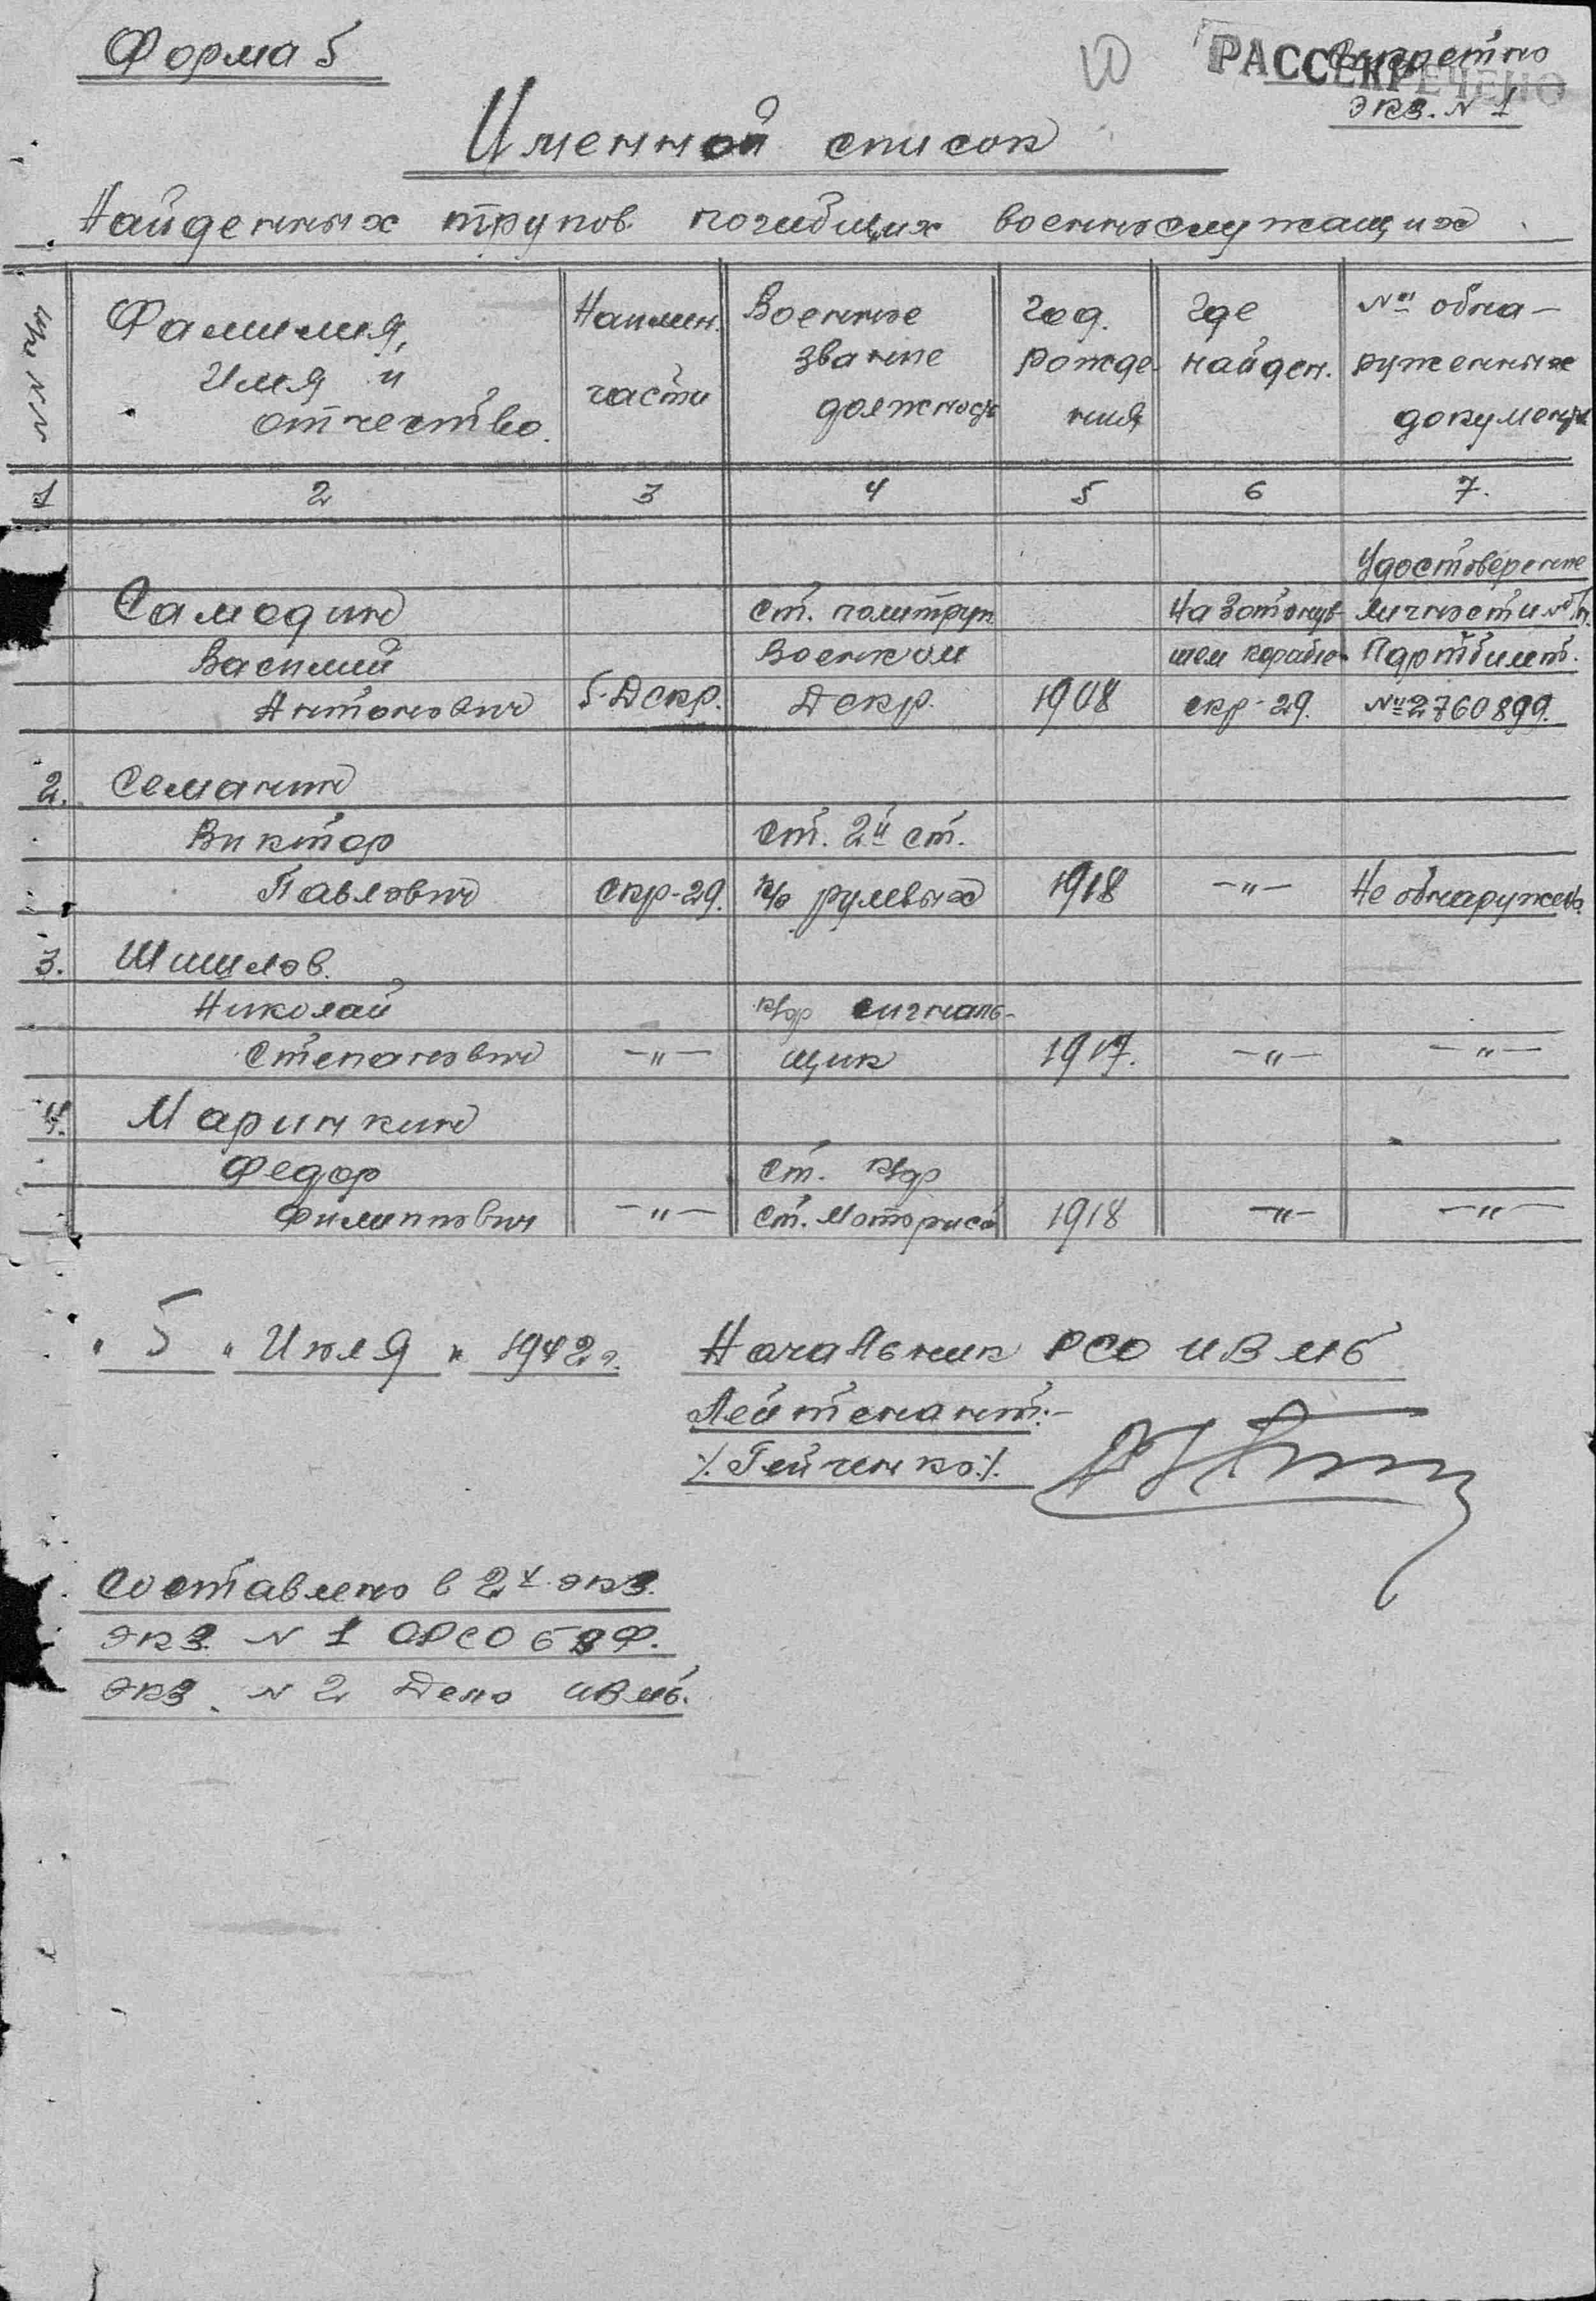 Форма 5
РАССЕКРЕЧЕНО
Секретно
экз. N 1
Именной список
Найденных трупов погибших военнослужащих
NN п/п
Фамилия, Имя и отчество.
Наимен. части
Военное звание должность
Год. рожде-ния
Где найден.
№ обна-руженных документ
1 2 3 4 5 6 7.
Удостоверение
Самодин ст. политрук На затонув- личности
Василий Военком шем корабле Партбилет.
Антонович 5-Дскр. Дскр. 1908 скр-29. № 2760899.
2. Семанин
Виктор ст. 2й ст.
Павлович скр-29. к/о рулевых 1918 —"— Не обнаружено.
3. Шишлов.
Николай к/ф сигналь-
Степанович —"— щик 1917. —"— —"—
4. Маринкин
Федор ст. к/ф
Филиппович —"— ст. Моторист 1918 —"— —"—
" 5 " Июля " 1942 г. Начальник РСО ИВМБ
Лейтенант:-
/. Гейченко ./.
Составлено в 2х экз.
экз. N 1 ОРСО БВФ.
экз. N 2 Дело ИВМБ.